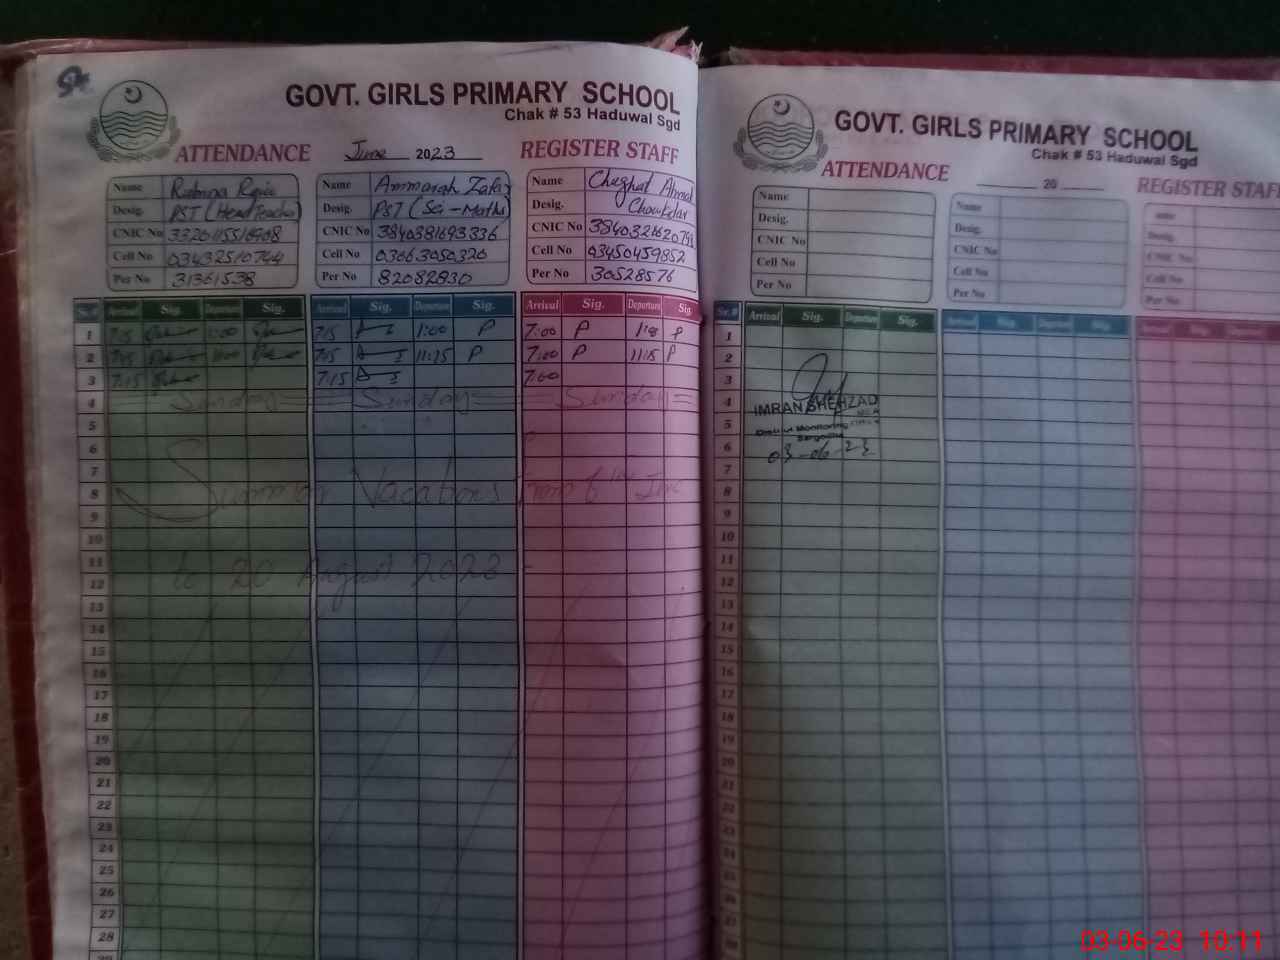 GOVT. GIRLS PRIMARY SCHOOL
Chak # 53 Haduwal Sgd
ATTENDANCE June 2023 REGISTER STAFF
Name Rubina Name Ammarah Zafar Name Ahmad
Desig. PST (Head Teacher) Desig. PST (Sci-Maths) Desig. Chowkidar
CNIC No CNIC No 3840381693336 CNIC No
Cell No 03432510744 Cell No 03063050320 Cell No 03450459852
Per No 31361538 Per No 82082830 Per No 30528576
Sr.# Arrival Sig. Departure Sig. Arrival Sig. Departure Sig. Arrival Sig. Departure Sig.
1 7:15 1:00 7:15 1:00 P 7:00 P P
2 7:15 7:15 11:15 P 7:00 P 11:15 P
3 7:15 7:15 7:00
4 Sunday Sunday Sunday
5
6
7
8 Summer Vacations from 6th June
9
10
11
to 20 August 2023
12
13
14
15
16
17
18
19
20
21
22
23
24
25
26
27
28
29
GOVT. GIRLS PRIMARY SCHOOL
Chak # 53 Haduwal Sgd
ATTENDANCE 20 REGISTER STAFF
Name Name Name
Desig. Desig. Desig.
CNIC No CNIC No CNIC No
Cell No Cell No Cell No
Per No Per No Per No
Sr.# Arrival Sig. Departure Sig. Arrival Sig. Departure Sig. Arrival Sig. Departure
1
2
3
4
IMRAN SHEHZAD
MEA
5
District Monitoring Office
Sargodha
6
03-06-23
7
8
9
10
11
12
13
14
15
16
17
18
19
20
21
22
23
24
25
26
27
28
03-06-23 10:11